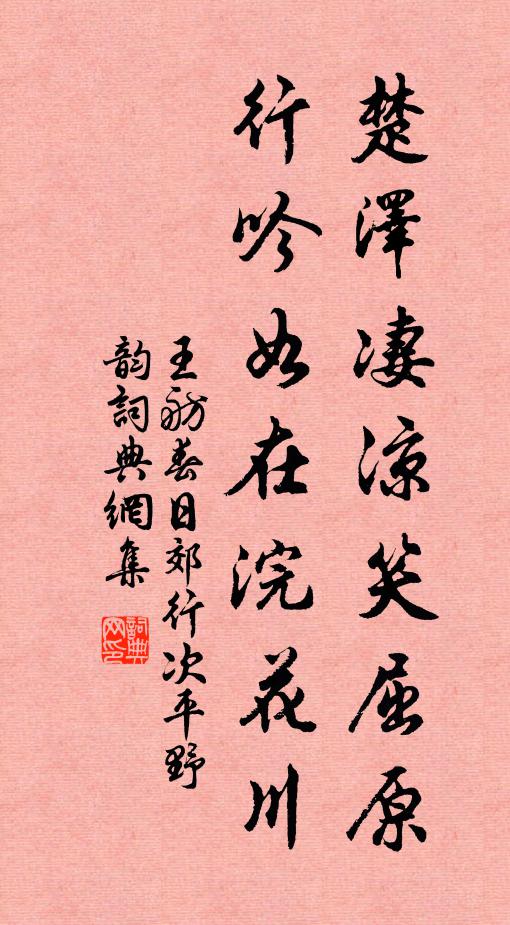 楚澤淒涼笑屈原
行吟如在浣花川
王舫春日郊行次平野
韻詞典網集
詞典
网印